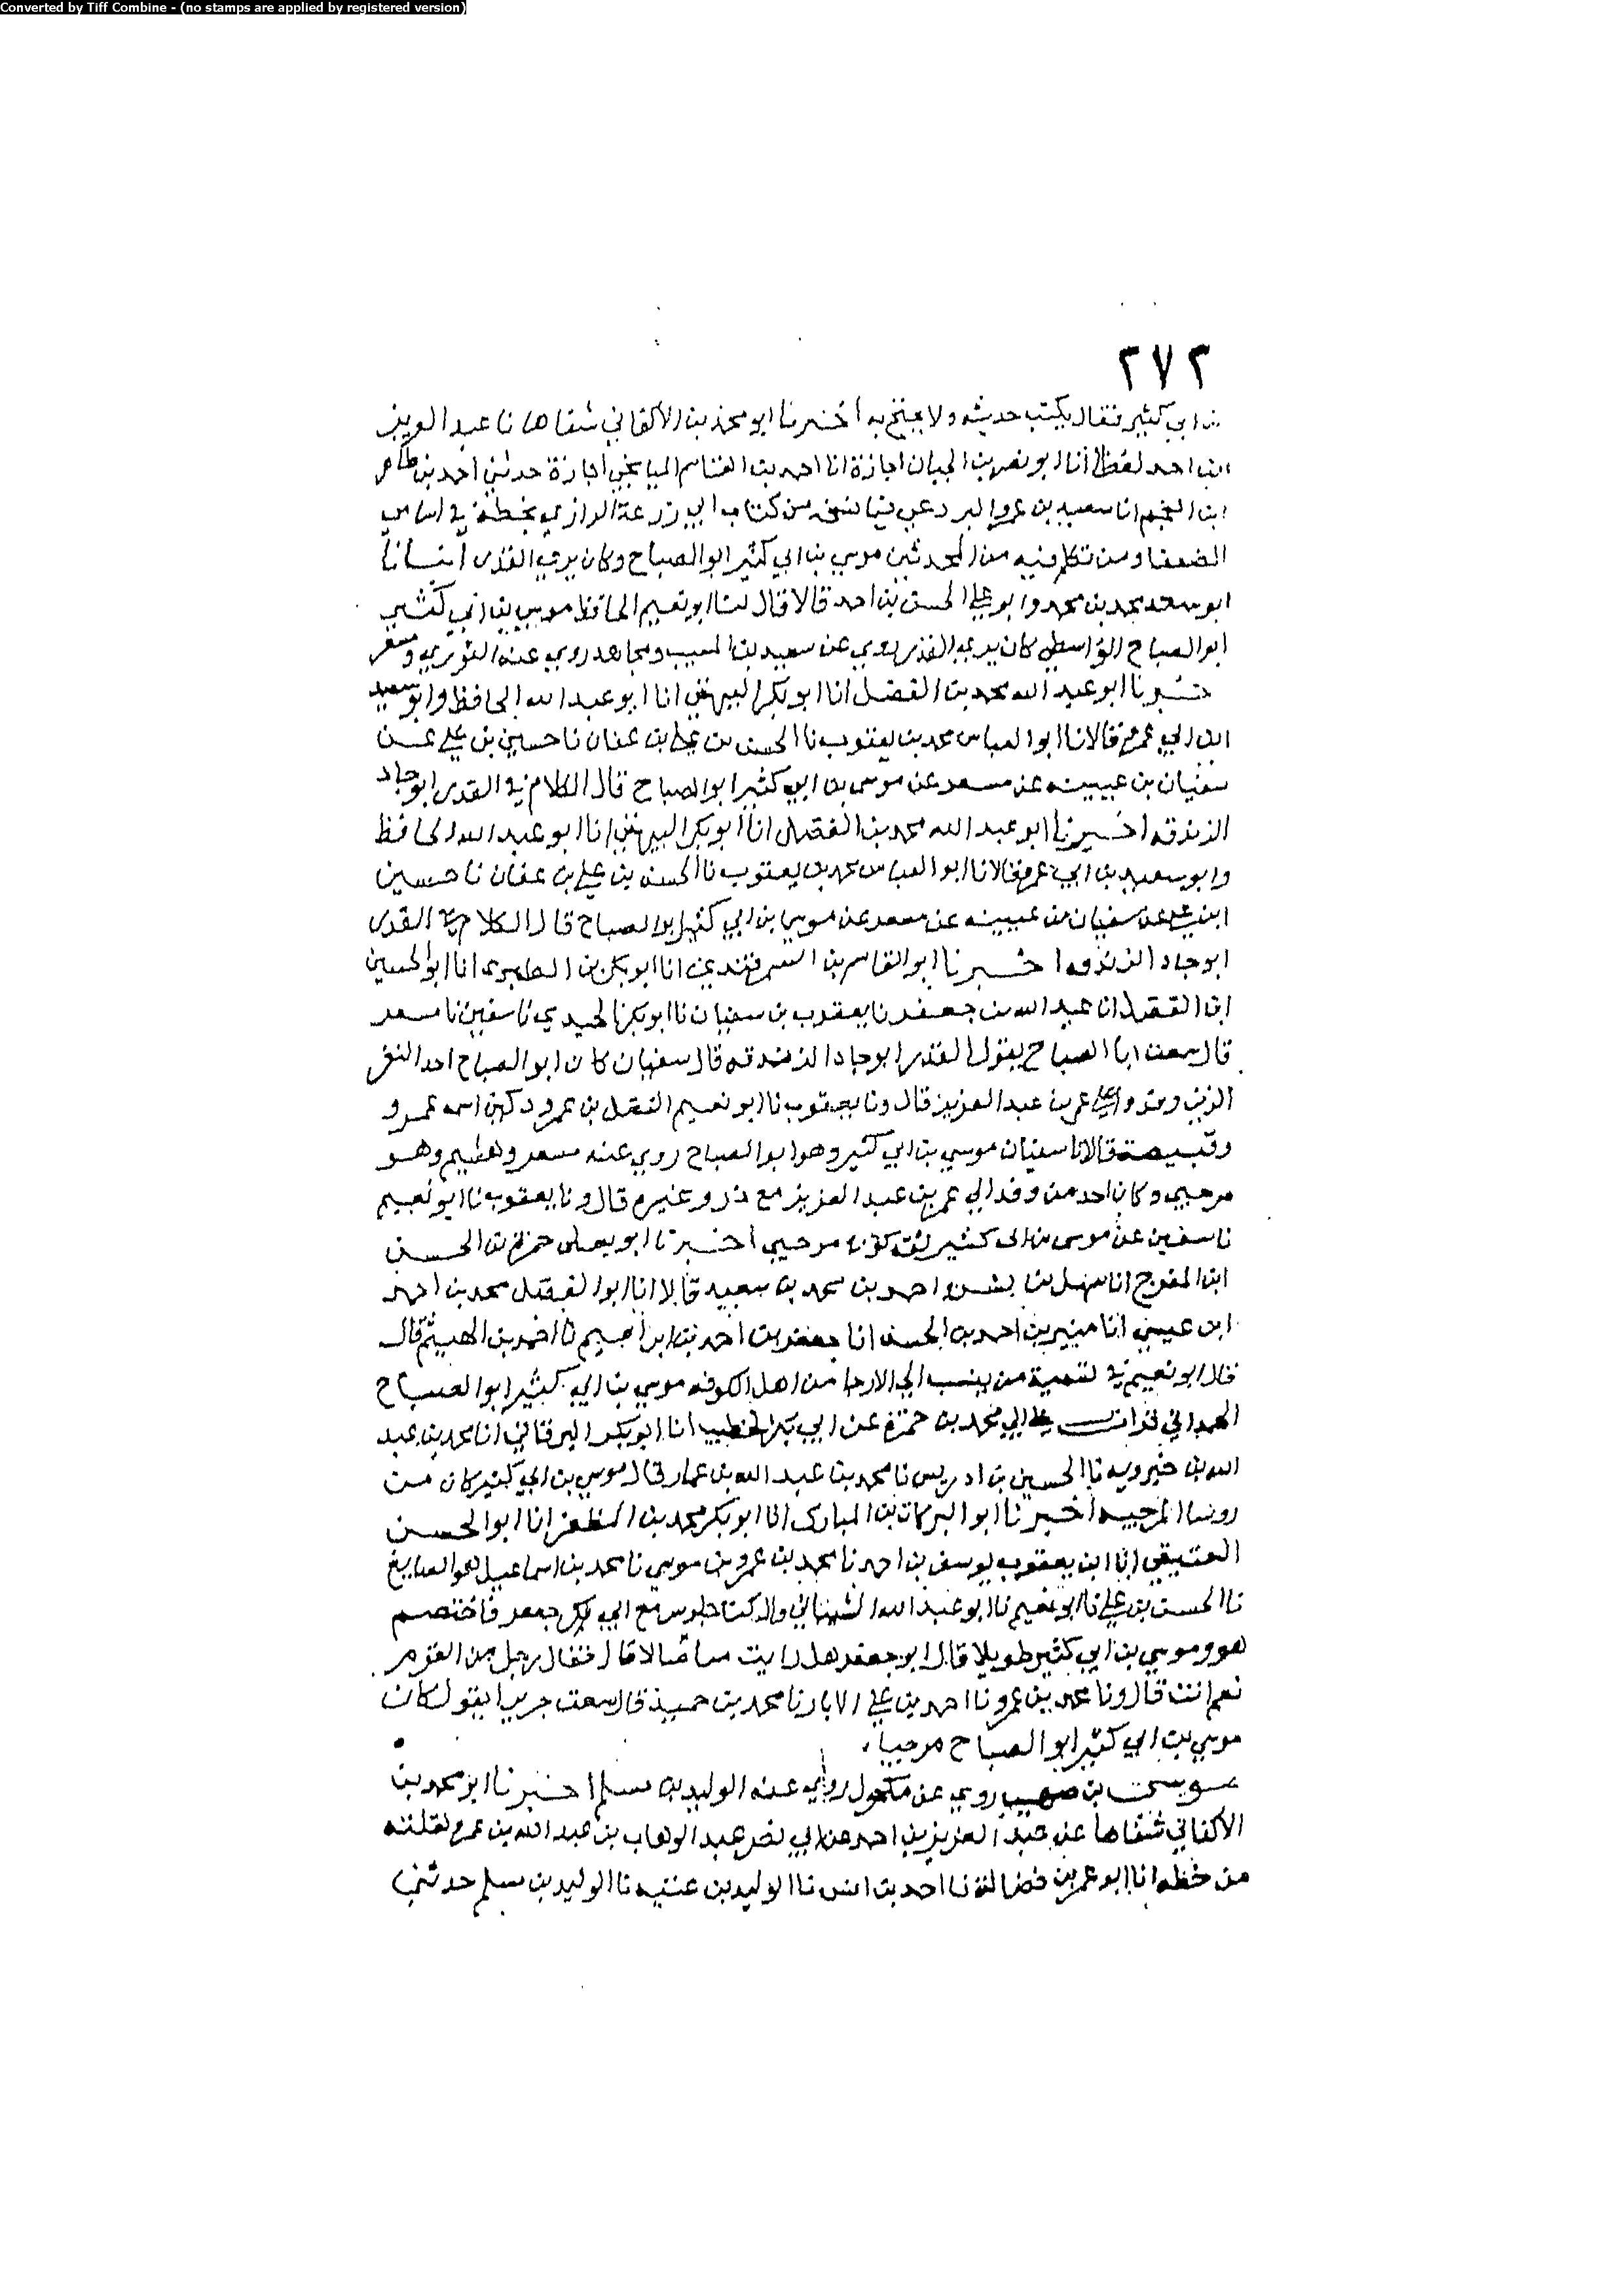 Converted by Tiff Combine - (no stamps are applied by registered version)
٢٧٢
بن ابي كثير فقال يكتب حديثه ولا يحتج به اخبرنا ابو محمد بن الاكفاني شفاها نا عبد العزيز
ابن احمد لفظا انا ابو نصر بن الجبان اجازة انا احمد بن القاسم الميانجي اجازة حدثني احمد بن طاهر
ابن النجم انا سعيد بن عمرو البردعي فيما نسخه من كتاب ابي زرعة الرازي بخطه في اسامي
الضعفا ومن تكلم فيه من المحدثين موسي بن ابي كثير ابو الصباح وكان يري القدر انبانا
ابو سعد محمد بن محمد وابو علي الحسن بن احمد قالا قال لنا ابو نعيم الحافظ موسي بن ابي كثير
ابو الصباح الواسطي كان يري القدر روي عن سعيد بن المسيب ومجاهد روي عنه الثوري ومسعر
خبرنا ابو عبد الله محمد بن الفضل انا ابو بكر البيهقي انا ابو عبد الله الحافظ وابو سعيد
ابن ابي عمرو قالا نا ابو العباس محمد بن يعقوب نا الحسن بن علي بن عفان نا حسين بن علي عن
سفيان بن عيينه عن مسعر عن موسى بن ابي كثير ابو الصباح قال الكلام في القدر ابو جاد
الزندقه اخبرنا ابو عبد الله محمد بن الفضل انا ابو بكر البيهقي انا ابو عبد الله الحافظ
وابو سعيد بن ابي عمرو قالا نا ابو العباس محمد بن يعقوب نا الحسن بن علي بن عفان نا حسين
ابن علي عن سفيان بن عيينه عن مسعر عن موسي بن ابي كثير ابو الصباح قال الكلام في القدر
ابو جاد الزندقه اخبرنا ابو القاسم بن السمرقندي انا ابو بكر بن الطبري انا ابو الحسين
ابن الفضل انا عبد الله بن جعفر نا يعقوب بن سفيان نا ابو بكر الحميدي نا سفين نا مسعر
قال سمعت ابا الصباح يقول القدر ابو جاد الزندقه قال سفيان كان ابو الصباح احد النفر
الذين وفدوا علي عمر بن عبد العزيز قال ونا يعقوب نا ابو نعيم الفضل بن عمرو دكين اسمه عمرو
وقبيصة قالا نا سفيان موسي بن ابي كثير وهو ابو الصباح روي عنه مسعر وهشيم وهو
مرجيي وكان احد من وفد الي عمر بن عبد العزيز مع ذر وغيره قال ونا يعقوب نا ابو نعيم
نا سفين عن موسى بن ابى كثير ثقه كوفي مرجيي اخبرنا ابو يعلى حمزة بن الحسن
ابن المفرج انا سهل بن بشر واحمد بن محمد بن سعيد قالا انا ابو الفضل محمد بن احمد
ابن عيسي انا منير بن احمد بن الحسن انا جعفر بن احمد بن ابراهيم نا احمد بن الهيثم قال
قال ابو نعيم في تسمية من ينسب الي الارجا من اهل الكوفه موسي بن ابي كثير ابو الصباح
الهمداني قرات علي ابي محمد بن حمزة عن ابي بكر الخطيب انا ابو بكر البرقاني انا محمد بن عبد
الله بن خميرويه نا الحسين بن ادريس نا محمد بن عبد الله بن عمار قال موسي بن ابي كثير كان من
روسا المرجيه اخبرنا ابو البركات بن المبارك انا ابو بكر محمد بن المظفر انا ابو الحسن
العتيقي انا ابن يعقوب يوسف بن احمد نا محمد بن عمرو بن موسي نا محمد بن اسماعيل هو الصايغ
نا الحسن بن علي نا ابو نعيم نا ابو عبد الله الشيباني قال كنا جلوس مع ابي جعفر فاختصم
هو وموسي بن ابي كثير طويلا قال ابو جعفر هل رايت ضالا قال فقال رجل من القوم
نعم انت قال ونا محمد بن عمرو نا احمد بن علي الابار نا محمد بن حميد قال سمعت جريرا يقول كان
موسي بن ابي كثير ابو الصباح مرجيا
موسي بن صهيب روي عن مكحول روي عنه الوليد بن مسلم اخبرنا ابو محمد بن
الاكفاني شفاها عن عبد العزيز بن احمد عن ابي نصر عبد الوهاب بن عبد الله بن عمر ونقلته
من خطه انا ابو عمر بن فضالة نا احمد بن انس نا الوليد بن عتبه نا الوليد بن مسلم حدثني